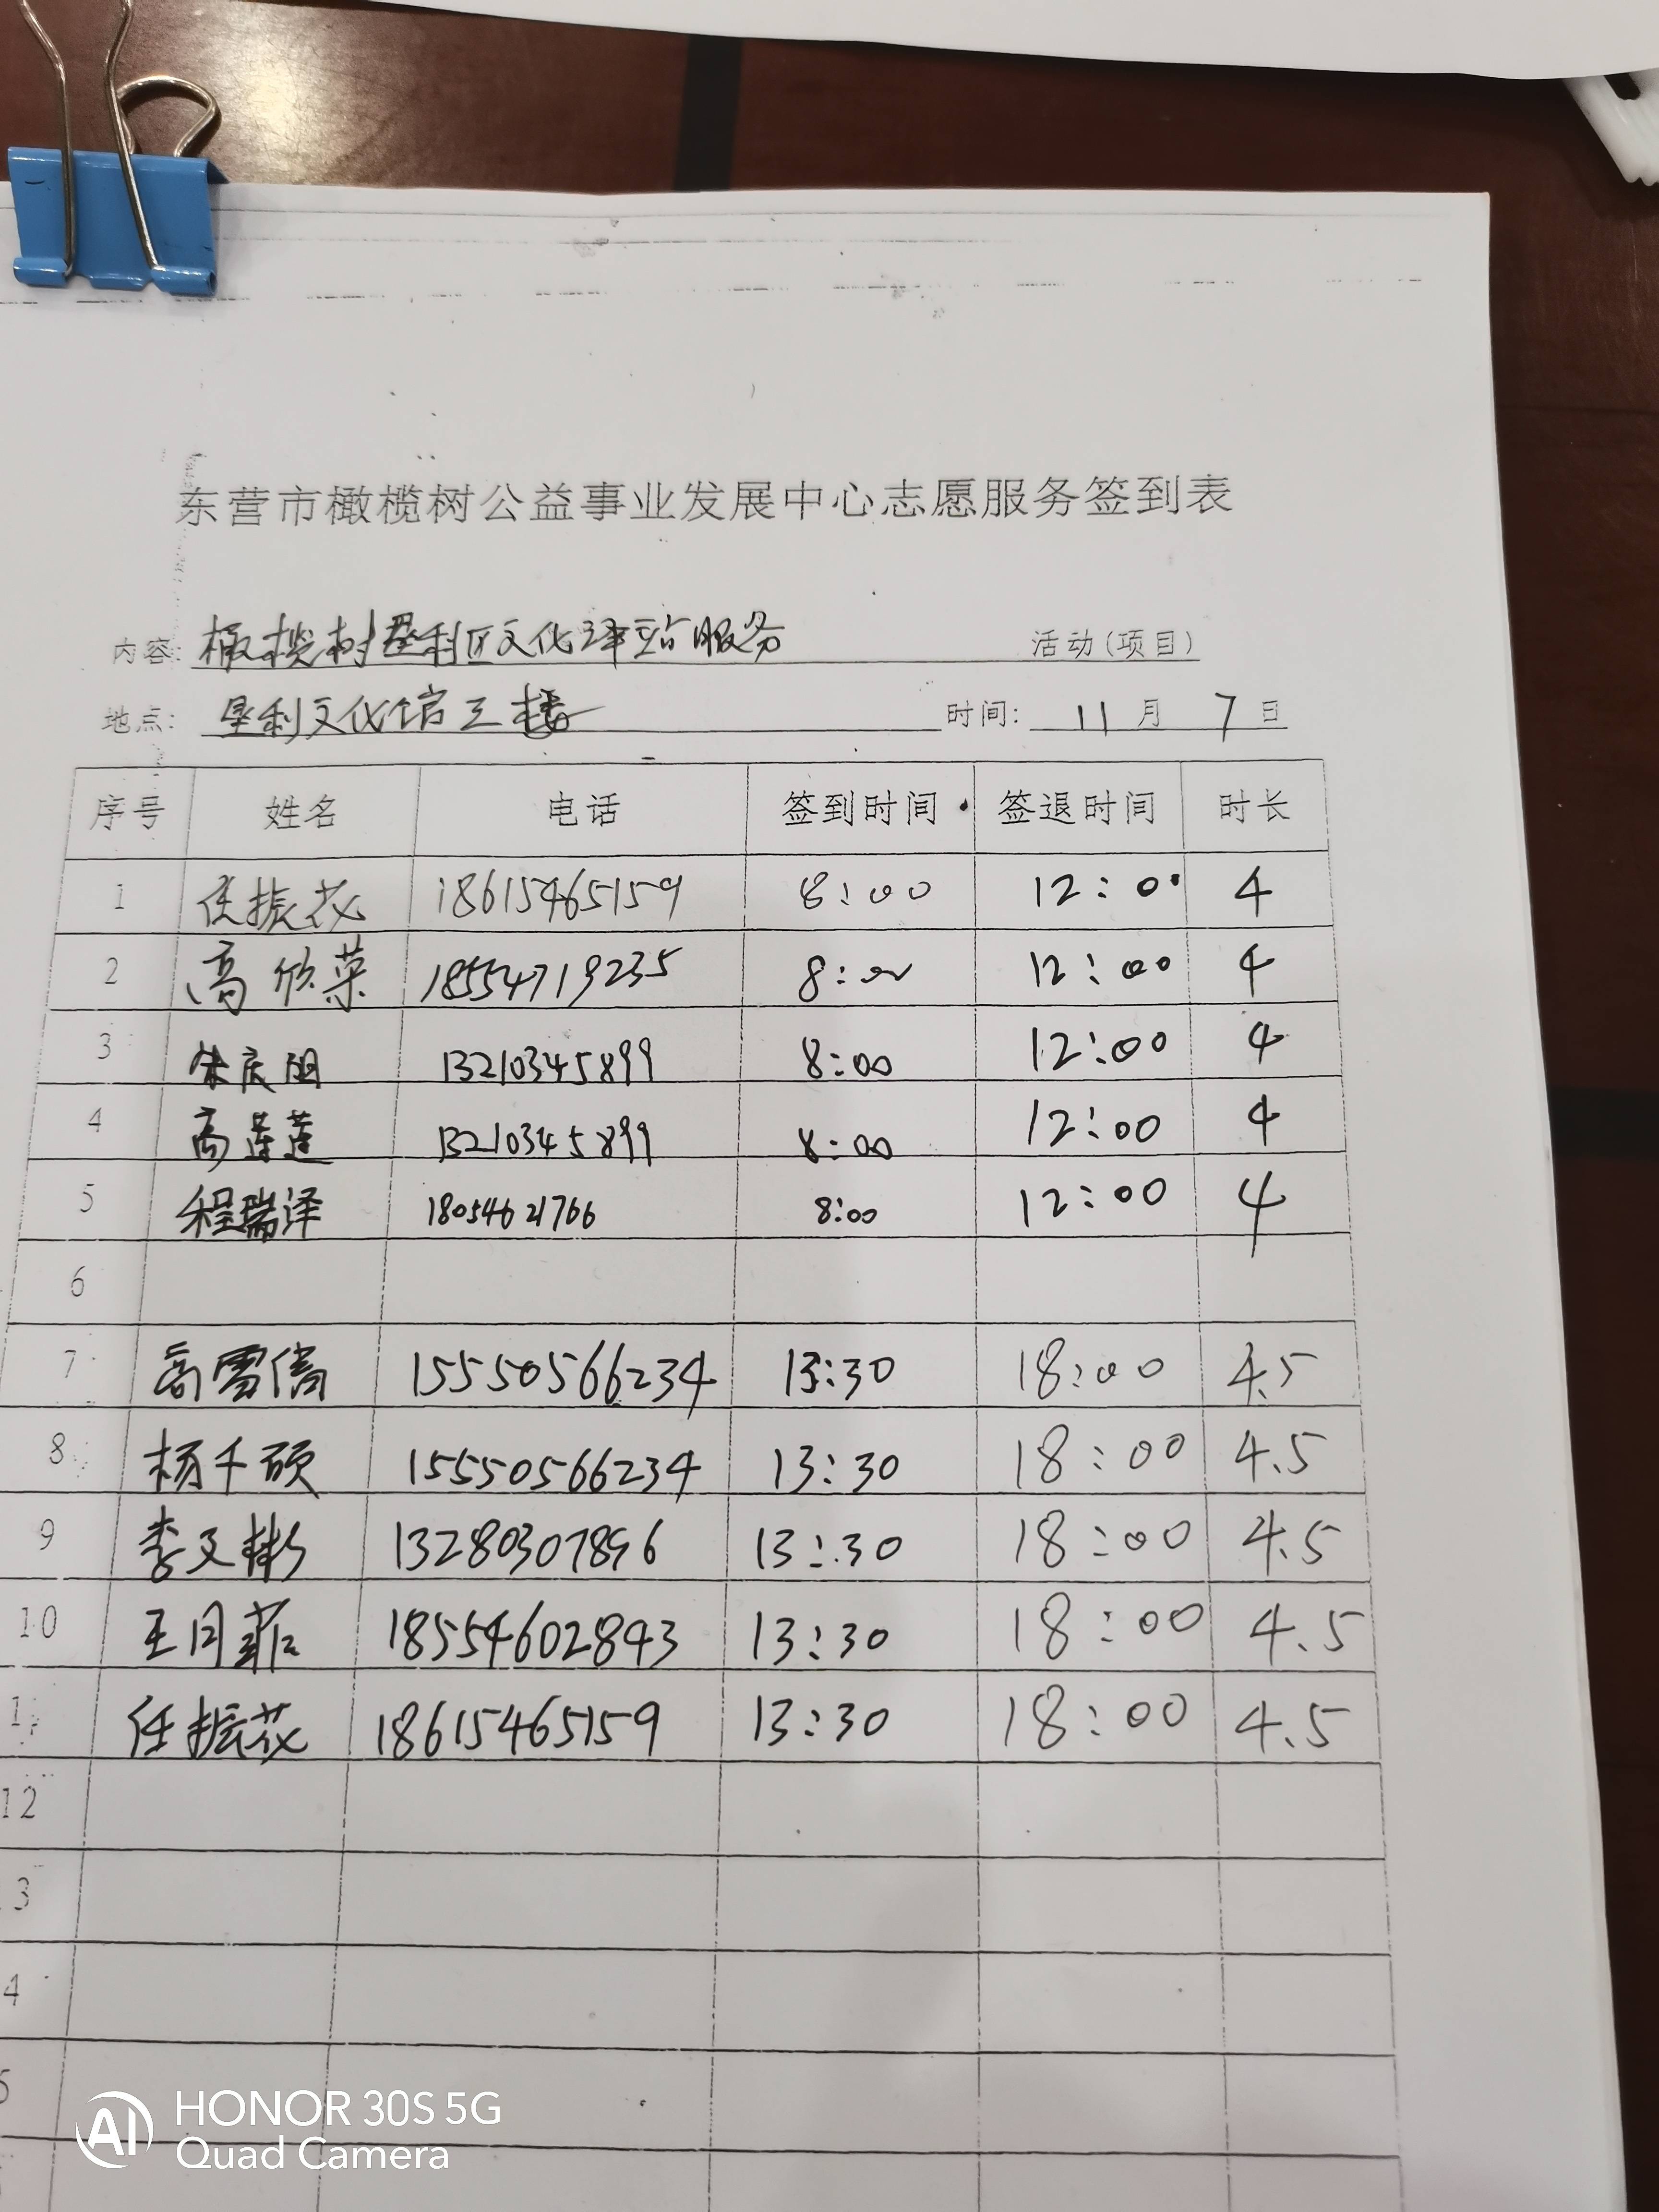 东营市橄榄树公益事业发展中心志愿服务签到表
内容: 橄榄树垦利区文化驿站服务 活动(项目)
地点: 垦利文化馆三楼 时间: 11 月 7 日
序号 姓名 电话 签到时间 签退时间 时长
1 任振花 18615465159 8:00 12:00 4
2 高欣菜 18554719235 8:00 12:00 4
3 13210345899 8:00 12:00 4
4 高莲莲 13210345899 8:00 12:00 4
5 程瑞泽 18054621766 8:00 12:00 4
6
7 高雪倩 15550566234 13:30 18:00 4.5
8 杨千硕 15550566234 13:30 18:00 4.5
9 李文彬 13280307896 13:30 18:00 4.5
10 王月菲 18554602843 13:30 18:00 4.5
11 任振花 18615465159 13:30 18:00 4.5
12
3
4
5
AI HONOR 30S 5G
Quad Camera